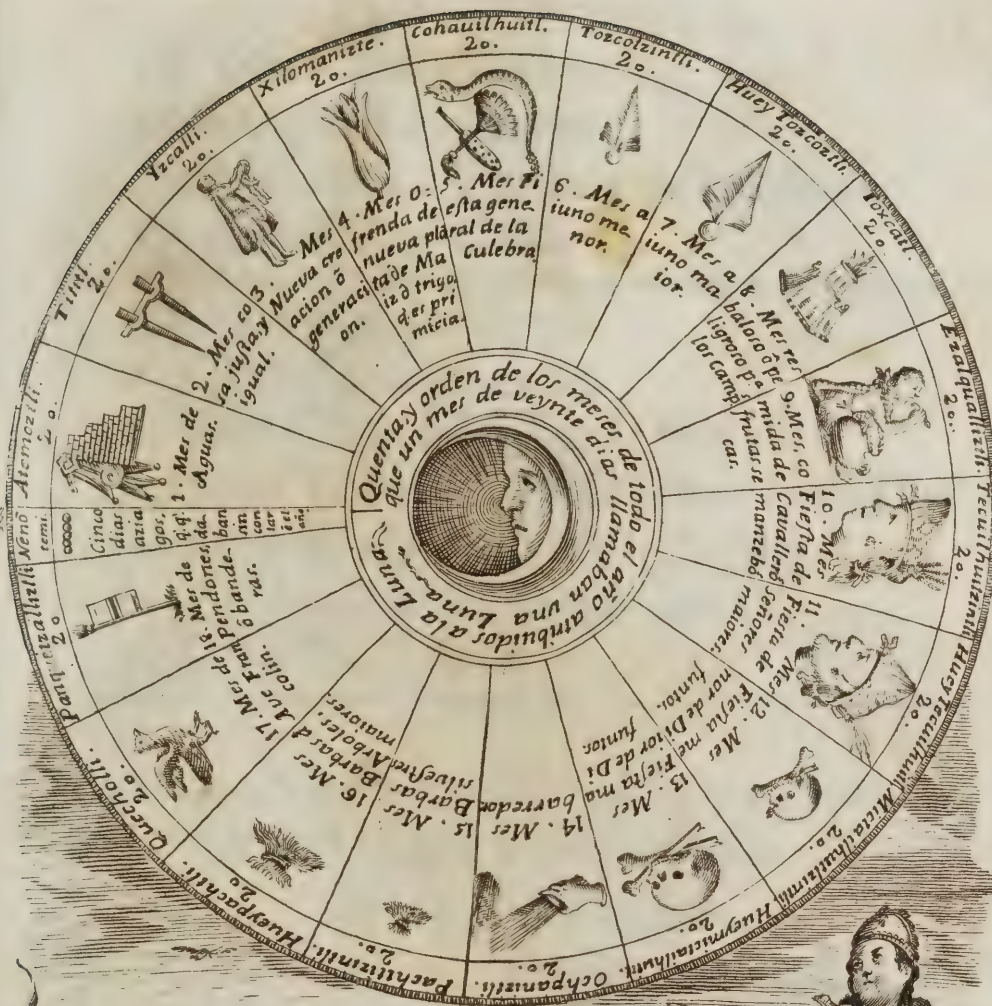 Quenta, y orden de los meses, de todo el año atribuidos a la Luna
que un mes de veynte dias llamaban una Luna
Atemoztli.
20.
1. Mes de
Aguas.
Tititl.
20.
2. Mes co
sa justa, y
igual.
Yzcalli.
20.
3. Mes
Nueva cre
acion ô
generaci
on.
Xilomanizte.
20.
4. Mes O=
frenda de
nueva plã
ta de Ma
iz ô trigo
q. es pri
micia.
Cohauilhuitl.
20.
5. Mes Fi
esta gene
ral de la
Culebra
Tozcolzintli.
20.
6. Mes a
iuno me
nor.
Huey Tozcoztli.
20.
7. Mes a
iuno ma
ior.
Toxcatl.
20
8. Mes res
baloso ô pe
ligroso pª
los Camp
Ezalqualliztli.
20.
9. Mes. co
mida de
frutas se
cas.
Tecuilhuitzintli
20.
10. Mes
Fiesta de
Cavallerõ
manzebõ
Hueytecuilhuitl
20.
11. Mes
Fiesta de
Señores
maiores.
Mictailhuitzintli
20.
12. Mes
Fiesta me
nor de Di
funtos.
Hueymictailhuitl.
20.
13. Mes
Fiesta ma
ior de Di
funtos.
Ochpaniztli.
20.
14. Mes
barredor
Pachtitzintli.
20.
15. Mes
Barbas
silvestres
Hueypachtli.
20
16. Mes
Barbas d
Arboles
maiores
Quecholli.
20.
17. Mes de
Ave Fran
colin.
Panquetzaliztli
20
18. Mes de
Pendones,
ô bande-
ras.
Nenõ
temi
Cinco
dias
azia
gos,
q. q.
da
ban
sin
con
tar
ẽ el
año